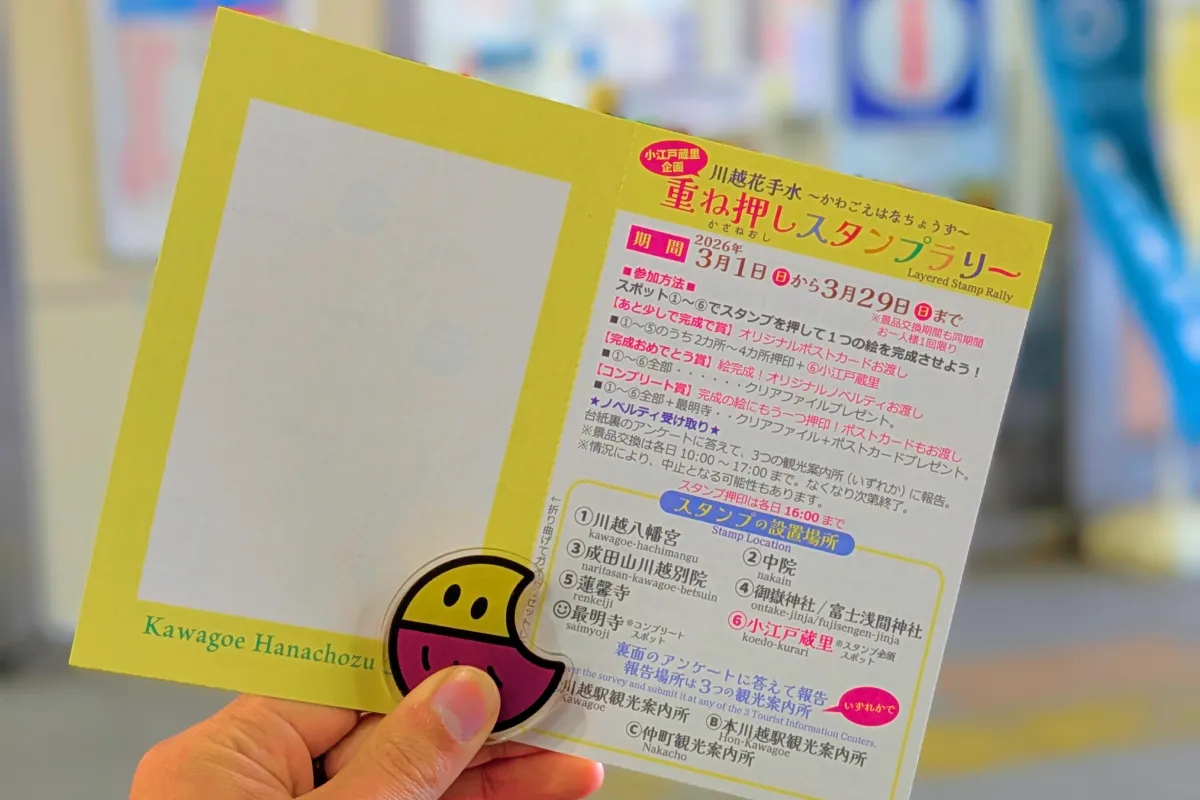 Kawagoe Hanachozu
小江戸蔵里
企画
川越花手水 ~かわごえはなちょうず~
重ね押しスタンプラリー
かさねおし
Layered Stamp Rally
期間
2026年
3月1日日から3月29日日まで
※景品交換期間も同期間
お一人様1回限り
■参加方法■
スポット①~⑥でスタンプを押して1つの絵を完成させよう!
【あと少しで完成で賞】オリジナルポストカードお渡し
■①~⑤のうち2カ所~4カ所押印+⑥小江戸蔵里
【完成おめでとう賞】絵完成!オリジナルノベルティお渡し
■①~⑥全部・・・・・・・クリアファイルプレゼント。
【コンプリート賞】完成の絵にもう一つ押印!ポストカードもお渡し
■①~⑥全部+最明寺・・クリアファイル+ポストカードプレゼント。
★ノベルティ受け取り★
台紙裏のアンケートに答えて、3つの観光案内所(いずれか)に報告。
※景品交換は各日10:00~17:00まで。なくなり次第終了。
※情況により、中止となる可能性もあります。
スタンプ押印は各日16:00まで
スタンプの設置場所
Stamp Location
①川越八幡宮
kawagoe-hachimangu
②中院
nakain
③成田山川越別院
naritasan-kawagoe-betsuin
④御嶽神社/富士浅間神社
ontake-jinja/fujisengen-jinja
⑤蓮馨寺
renkeiji
⑥小江戸蔵里 ※スタンプ企画
スポット
koedo-kurari
最明寺 ※コンプリート
スポット
saimyoji
裏面のアンケートに答えて報告
報告場所は3つの観光案内所
いずれかで
the survey and submit it at any of the 3 Tourist Information Centers.
川越駅観光案内所
Kawagoe
Ⓑ本川越駅観光案内所
Hon-Kawagoe
Ⓒ仲町観光案内所
Nakacho
←折り曲げて